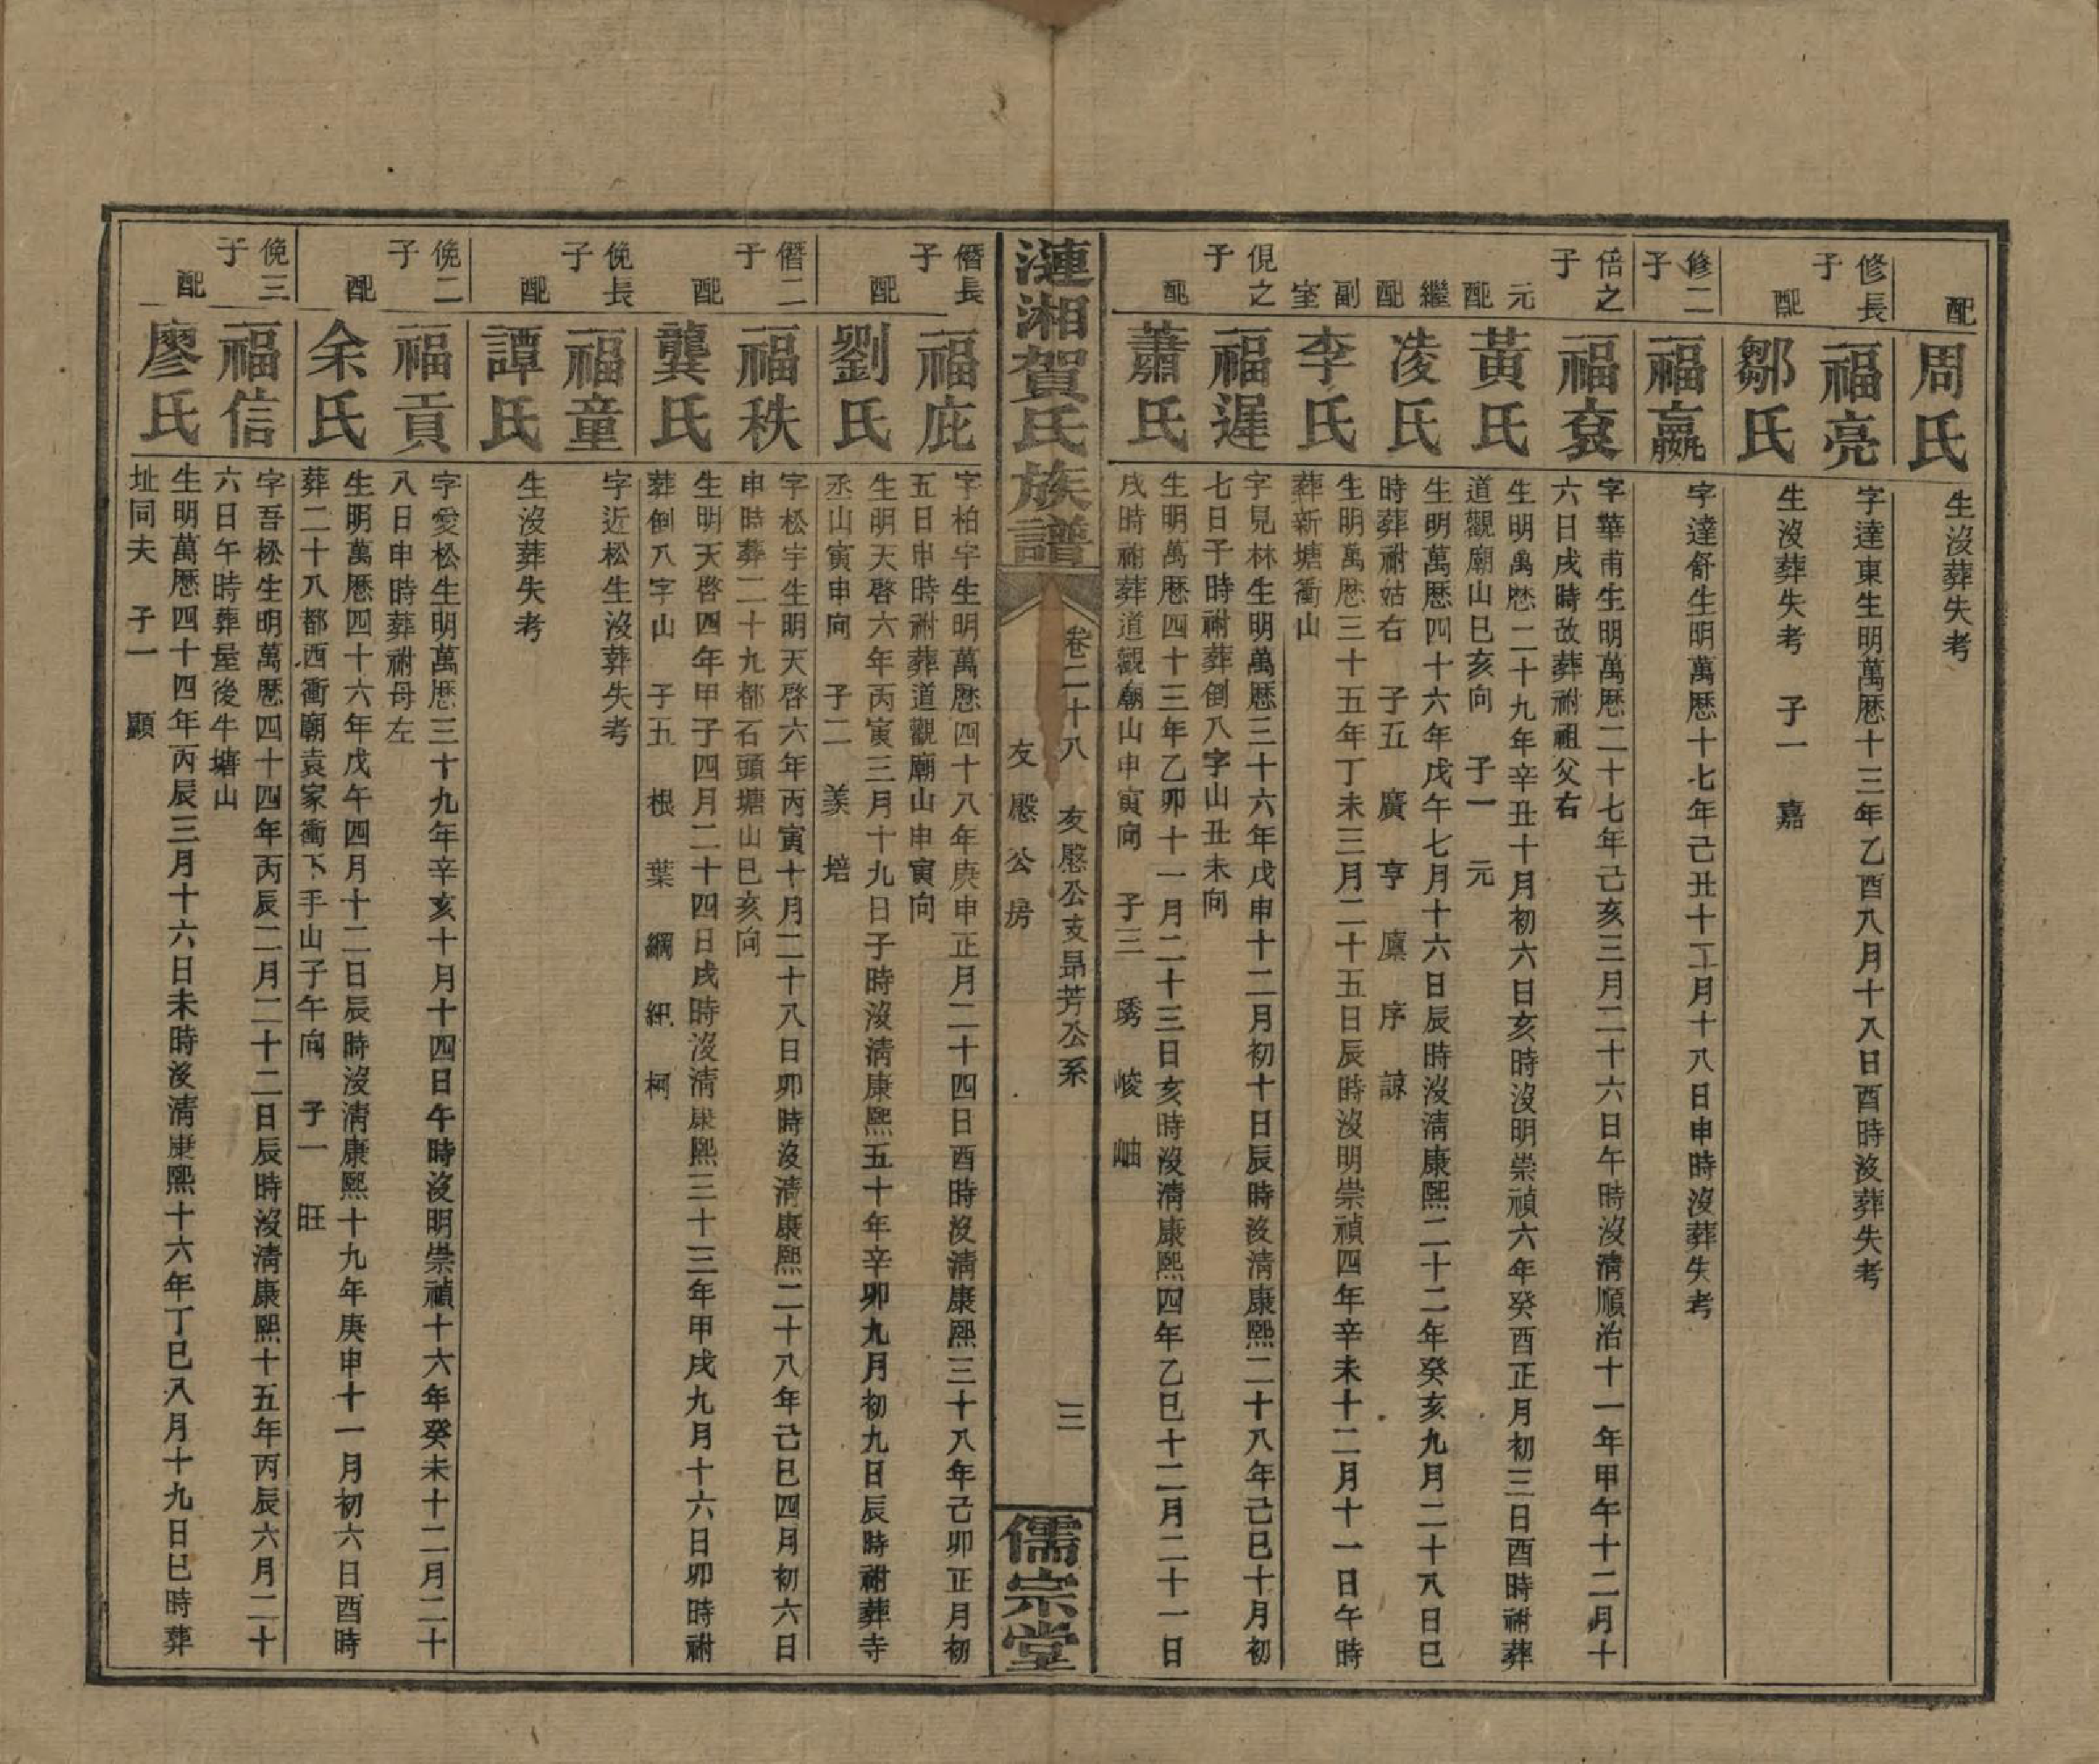 配
周氏
生沒葬失考
修長子
福亮
字達東生明萬歷十三年乙酉八月十八日酉時沒葬失考
配
鄒氏
生沒葬失考　子一　嘉
修二子
福嬴
字達舒生明萬歷十七年己丑十二月十八日申時沒葬失考
倍之子
福袞
字華甫生明萬歷二十七年己亥三月二十六日午時沒清順治十一年甲午十二月十
六日戌時改葬祔祖父右
元配
黃氏
生明萬歷二十九年辛丑十月初六日亥時沒明崇禎六年癸酉正月初三日酉時祔葬
道觀廟山巳亥向　子一　元
繼配
凌氏
生明萬歷四十六年戊午七月十六日辰時沒清康熙二十二年癸亥九月二十八日巳
時葬祔姑右　子五　廣　亨　廩　序　諒
副室
李氏
生明萬歷三十五年丁未三月二十五日辰時沒明崇禎四年辛未十二月十一日午時
葬新塘衝山
俔之子
福遲
字見林生明萬歷三十六年戊申十二月初十日辰時沒清康熙二十八年己巳十月初
七日子時祔葬倒八字山丑未向
配
蕭氏
生明萬歷四十三年乙卯十一月二十三日亥時沒清康熙四年乙巳十二月二十一日
戌時祔葬道觀廟山申寅向　子三　琇　崚　岫
漣湘賀氏族譜
卷二十八　友慇公支昴芳公系
友慇公房
三
儒宗堂
僭長子
福庇
字柏宇生明萬歷四十八年庚申正月二十四日酉時沒清康熙三十八年己卯正月初
五日申時祔葬道觀廟山申寅向
配
劉氏
生明天啓六年丙寅三月十九日子時沒清康熙五十年辛卯九月初九日辰時祔葬寺
丞山寅申向　子二　羕　培
僭二子
福秩
字松宇生明天啓六年丙寅十月二十八日卯時沒清康熙二十八年己巳四月初六日
申時葬二十九都石頭塘山巳亥向
配
龔氏
生明天啓四年甲子四月二十四日戌時沒清康熙三十三年甲戌九月十六日卯時祔
葬倒八字山　子五　根　葉　綱　紐　柯
俛長子
福童
字近松生沒葬失考
配
譚氏
生沒葬失考
俛二子
福貢
字愛松生明萬歷三十九年辛亥十月十四日午時沒明崇禎十六年癸未十二月二十
八日申時葬祔母左
配
余氏
生明萬歷四十六年戊午四月十二日辰時沒清康熙十九年庚申十一月初六日酉時
葬二十八都西衝廟袁家衝下手山子午向　子一　旺
俛三子
福信
字吾松生明萬歷四十四年丙辰二月二十二日辰時沒清康熙十五年丙辰六月二十
六日午時葬屋後牛塘山
配
廖氏
生明萬歷四十四年丙辰三月十六日未時沒清康熙十六年丁巳八月十九日巳時葬
址同夫　子一　顯